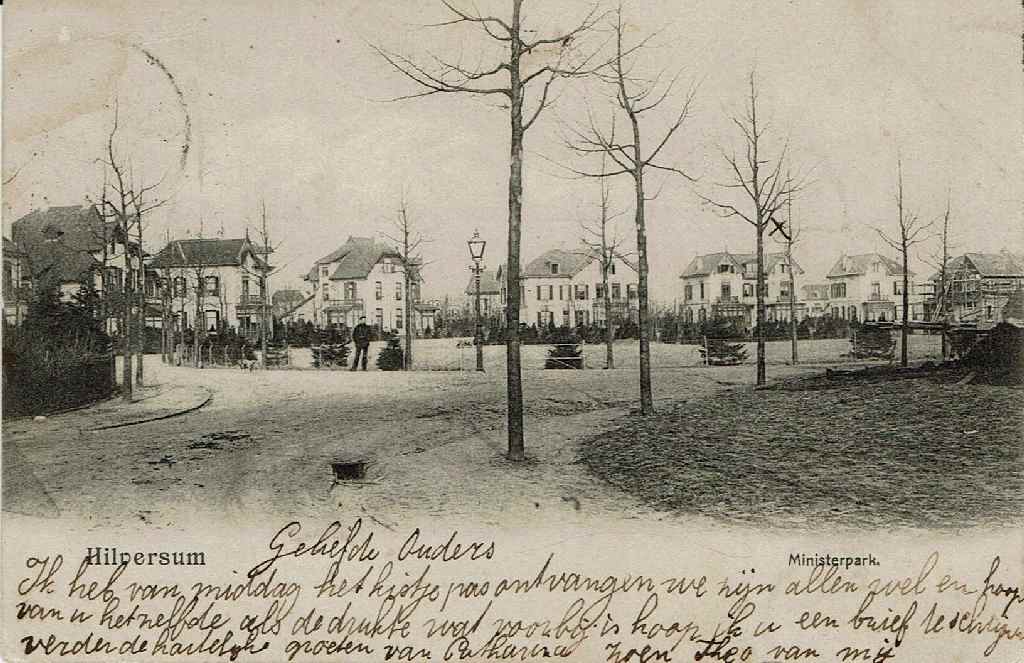 Hilversum
Geliefde Ouders
Ministerpark.
Ik heb van middag het kistje pas ontvangen we zijn allen wel en hoop
van u hetzelfde als de drukte wat voorbij is hoop ik u een brief te schrijven
verder de hartelijke groeten van Catharina zoen Theo van mij